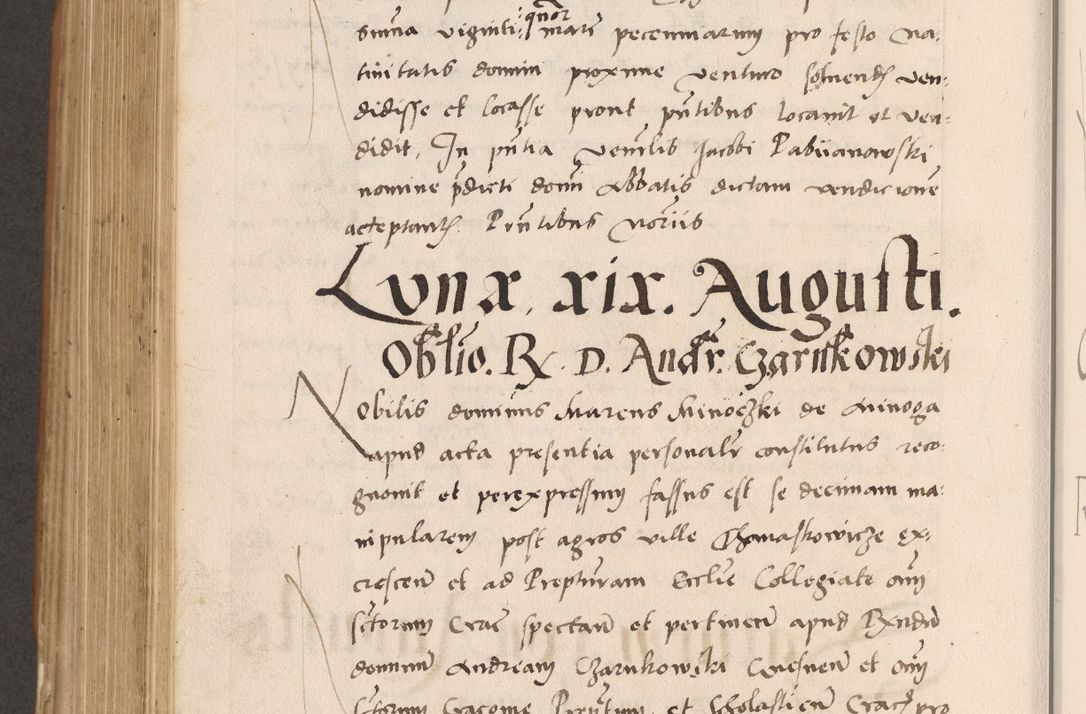 sum̃a viginti quor̃ mar̃ pecuniarum pro festo Na-
tivitatis domini proxime venturo solvend̃ ven-
didisse et locasse pront pñtibus locavit et ven-
didit, In pñtia veñlis Jacobi Pabiianowski
nomine p̃dicti domi Abbatis dictam vendicionẽ
acceptant̃. Pñtibus Noriis
Lvnæ. xix. Augusti.
Obl̃io. R. D. Andr̃. Czarñkowski
Nobilis dominus Laurens Minoczki de Minoga
apud acta presentia personalr̃ constitutus reco-
gnovit et per expressum fassus est se decimam ma-
nipularem post agros ville Thomaskowicze ex-
crescen̄ et ad Prepturam Ecclie Collegiate om̃
sc̃torum Crac̃ spectan̄ et pertinen̄ apud Rxndū
dominū Andream Czarnkowski Gnesnen̄ et om̃
sc̃torum Cracovie Preptum et scholasticū Crac̃ pro